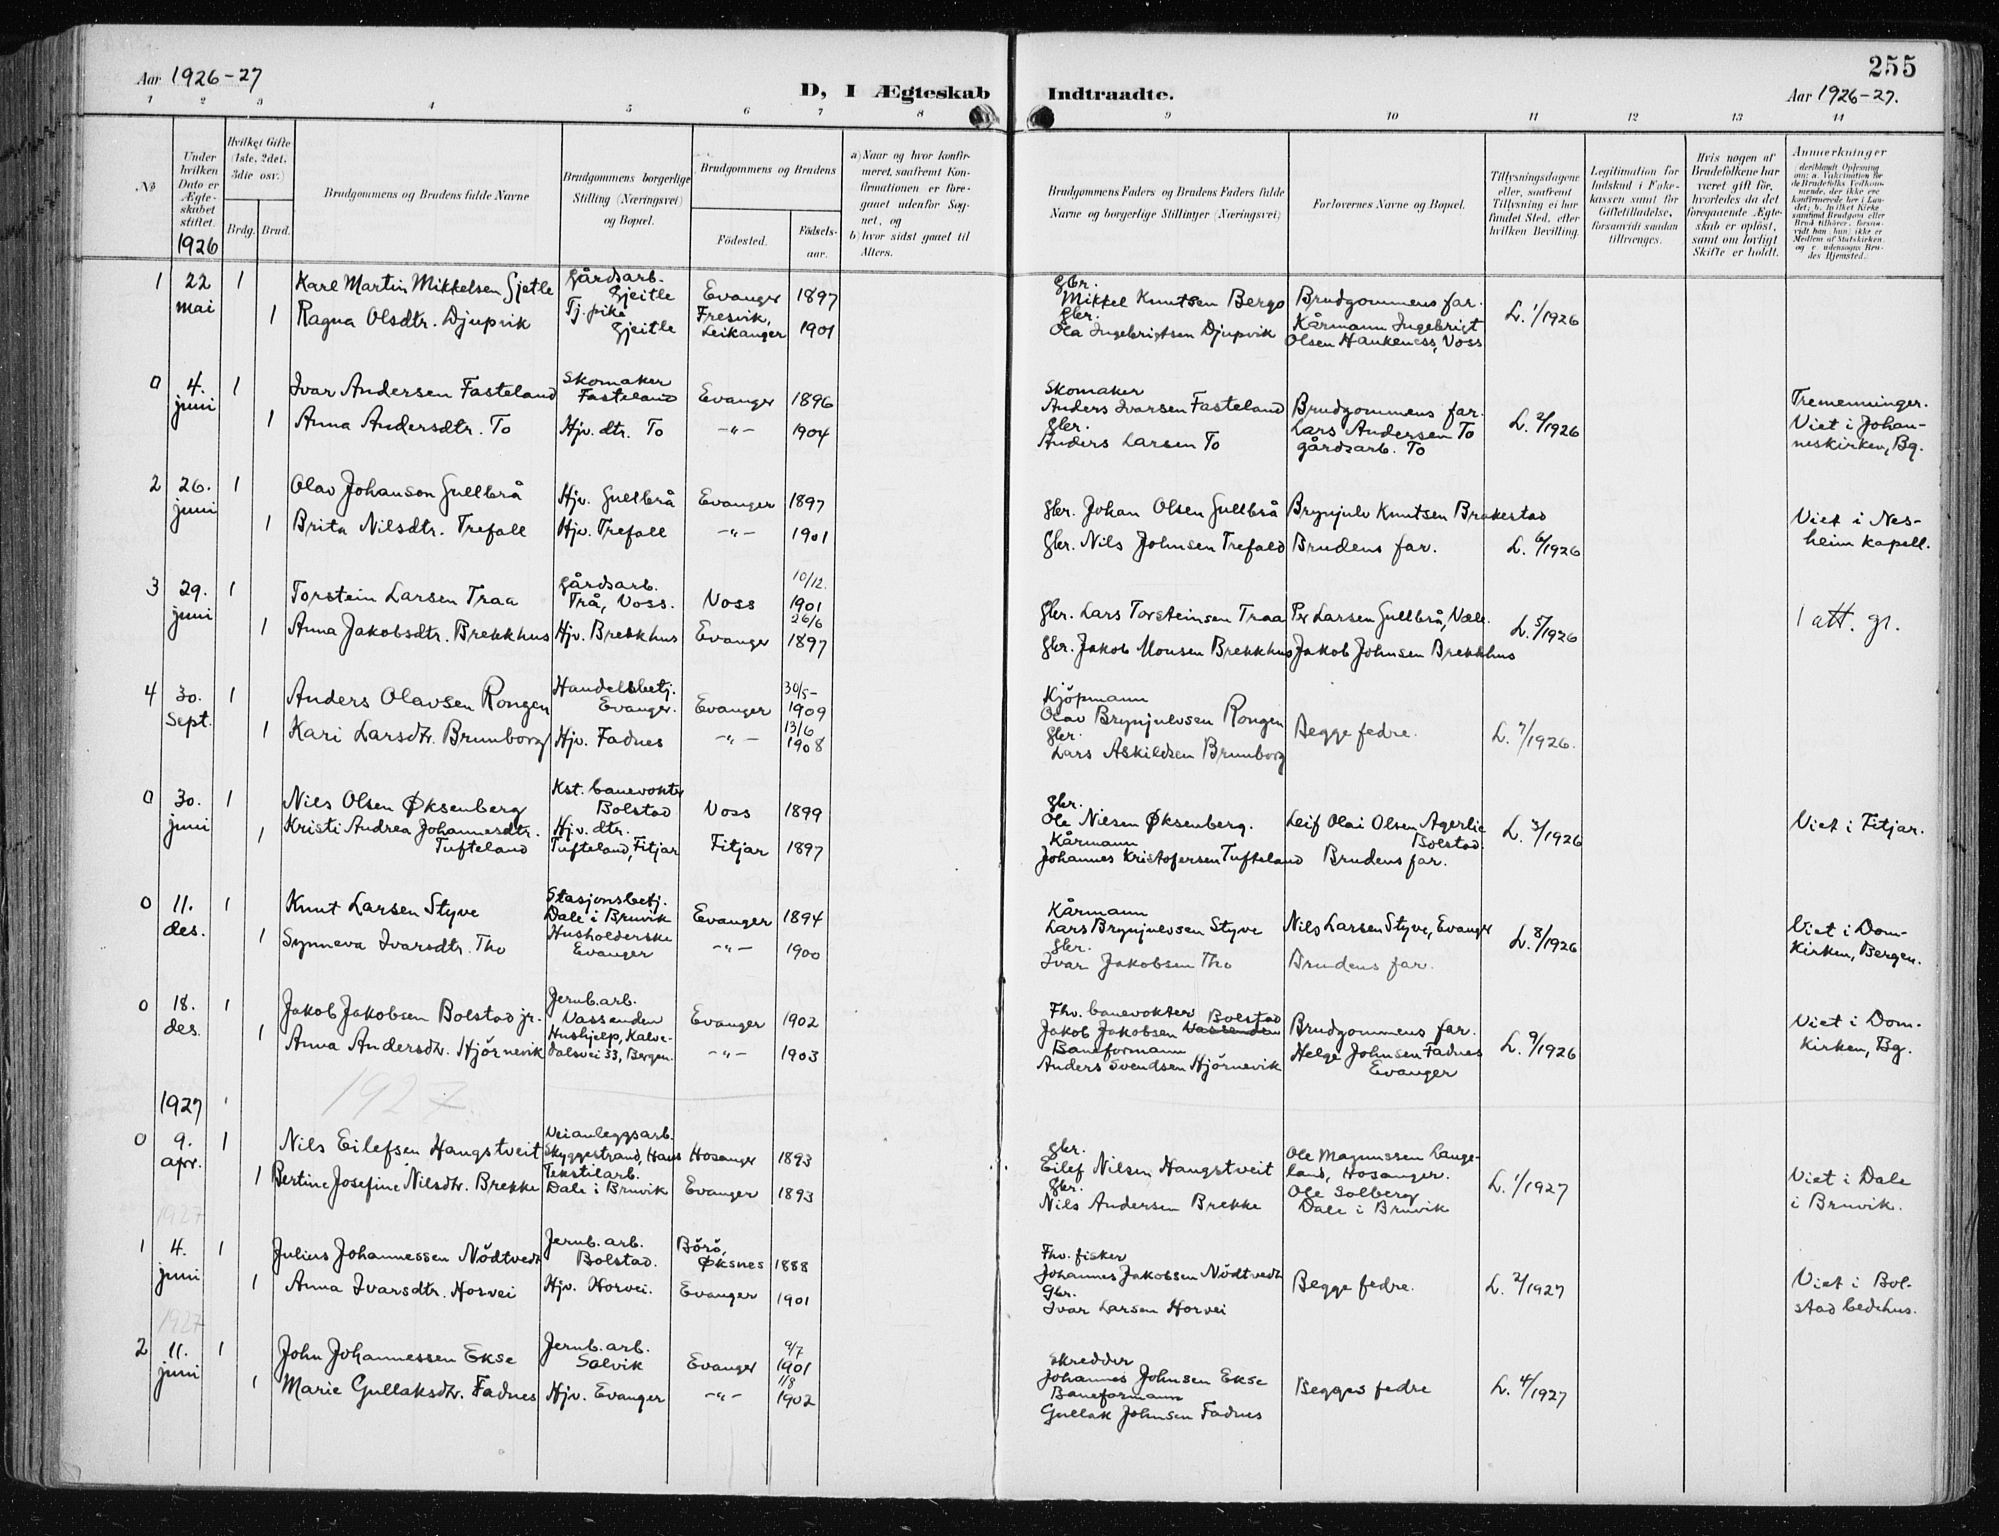 255
Aar 1926-27
D, I Ægteskab Indtraadte.
Aar 1926-27.
1 2 3 4 5 6 7 8 9 10 11 12 13 14
No
Under hvilken Dato er Ægteskabet stiftet.
1926
Hvilket Gifte (1ste, 2det, 3die osv.)
Brdg. Brud.
Brudgommens og Brudens fulde Navne
Brudgommens borgerlige Stilling (Næringsvei) og Bopæl.
Brudgommens og Brudens
Fødested.
Fødselsaar.
a) Naar og hvor konfirmeret, saafremt Konfirmationen er foregaaet udenfor Sognet, og
b) hvor sidst gaaet til Alters.
Brudgommens Faders og Brudens Faders fulde Navne og borgerlige Stillinger (Næringsvei)
Forlovernes Navne og Bopæl.
Tillysningsdagene eller, saafremt Tillysning ei har fundet Sted, efter hvilken Bevilling.
Legitimation for Indskud i Enkekassen samt for Giftetilladelse, forsaavidt saadan tiltrænges.
Hvis nogen af Brudefolkene har været gift før, hvorledes da det foregaaende Ægteskab er opløst, samt om lovligt Skifte er holdt.
Anmærkninger
1 22 mai 1 Karl Martin Mikkelsen Gjetle Gårdsarb. Gjeitle Evanger 1897 Gbr. Mikkel Knutsen Berge Brudgommens far. L. 1/1926
1 Ragna Olsdtr. Djupvik Tj. pike Gjeitle Fresvik, Leikanger 1901 Gbr. Ola Ingebrigtsen Djupvik Kårmann Ingebrigt Olsen Haukeness, Voss
0 4. juni 1 Ivar Andersen Fasteland Skomaker Fasteland Evanger 1896 Skomaker Anders Ivarsen Fasteland Brudgommens far. L. 2/1926 Tremenninger. Viet i Johanneskirken, Bg.
1 Anna Andersdtr. To Hjv. dtr. To -"- 1904 Gbr. Anders Larsen To Lars Andersen To gårdsarb. To
2 26. juni 1 Olav Johanson Gullbrå Hjv. Gullbrå Evanger 1897 Gbr. Johan Olsen Gullbrå Brynjulv Knutsen Brakestad L. 6/1926 Viet i Nesheim kapell.
1 Brita Nilsdtr. Trefall Hjv. Trefall -"- 1901 Gbr. Nils Johnsen Trefald Brudens far.
3 29. juni 1 Torstein Larsen Traa Gårdsarb. Trå, Voss. Voss 10/12. 1901 Gbr. Lars Torsteinsen Traa Per Larsen Gullbrå, L. 5/1926 1 att. gr.
1 Anna Jakobsdtr. Brekkhus Hjv. Brekkhus Evanger 26/6 1897 Gbr. Jakob Monsen Brekkhus Jakob Johnsen Brekkhus
4 30. Sept. 1 Anders Olavsen Rongen Handelsbetj. Evanger. Evanger 30/5- 1909 Kjöpmann Olav Brynjulvsen Rongen Begge fedre. L. 7/1926.
1 Kari Larsdtr. Brunborg Hjv. Fadnes -"- 13/6 1908 Gbr. Lars Askildsen Brunborg
0 30. juni 1 Nils Olsen Øksenberg Kst. banevokter Bolstad Voss 1899 Gbr. Ole Nilsen Øksenberg. Leif Olai Olsen Agerlie Bolstad. L. 3/1926 Viet i Fitjar.
1 Kristi Andrea Johannesdtr. Tufteland Hjv. dtr. Tufteland, Fitjar Fitjar 1897 Kårmann Johannes Kristofersen Tufteland Brudens far.
0 11. des. 1 Knut Larsen Styve Stasjonsbetj. Dale i Bruvik Evanger 1894 Kårmann Lars Brynjulvsen Styve Nils Larsen Styve, Evanger L. 8/1926 Viet i Domkirken, Bergen.
1 Synneva Ivarsdtr. Tho Husholderske Evanger -"- 1900 Gbr. Ivar Jakobsen Tho Brudens far.
0 18. des. 1 Jakob Jakobsen Bolstad jr. Jernb.arb. Vassenden Evanger 1902 Fhv. banevokter Jakob Jakobsen Vassenden Bolstad Brudgommens far. L. 9/1926 Viet i Domkirken, Bg.
1 Anna Andersdtr. Hjörnevik Hushjelp, Kalvedalsvei 33, Bergen. -"- 1903 Baneformann Anders Svendsen Hjörnevik Helge Johnsen Fadnes Evanger
1927
1927
0 9. apr. 1 Nils Eilefsen Haugstveit Veianleggsarb. Skyggestrand, Haus Hosanger 1893 Gbr. Eilef Nilsen Haugstveit Ole Magnussen Langeland, Hosanger. L. 1/1927 Viet i Dale i Bruvik.
1 Bertine Josefine Nilsdtr. Brekke Tekstilarb. Dale i Bruvik Evanger 1893 Gbr. Nils Andersen Brekke Ole Solberg Dale i Bruvik
1927
1 4. juni 1 Julius Johannessen Nödtvedt Jernb. arb. Bolstad. Börö, Øksnes 1888 Fhv. fisker Johannes Jakobsen Nödtvedt Begge fedre. L. 2/1927 Viet i Bolstad bedehus.
1 Anna Ivarsdtr. Horvei Hjv. Horvei. Evanger 1901 Gbr. Ivar Larsen Horvei
1927
2 11. juni 1 John Johannessen Ekse Jernb. arb. Solvik Evanger 9/7 1901 Skredder Johannes Johnsen Ekse Begges fedre L. 4/1927
1 Marie Gullaksdtr. Fadnes Hjv. Evanger -"- 1/8 1902 Baneformann Gullak Johnsen Fadnes